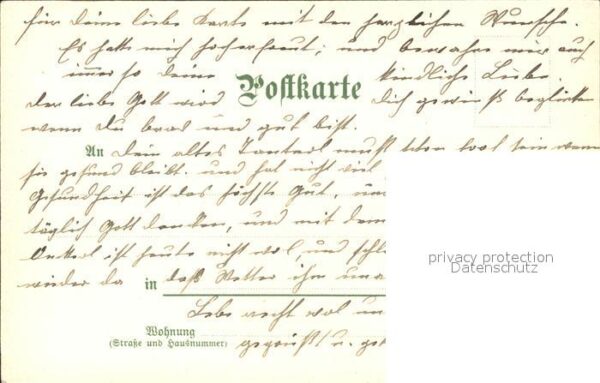 für Deine liebe Karte mit den herzlichen Wunsche.
Es hatte mich hocherfreut; und bewahre mir auch
immer so deine kindliche Liebe.
Postkarte
der liebe Gott wird Dich gewiß beglücken
wenn du brav und gut bist.
An Dein altes Tanterl muß schon froh sein wenn
sie gesund bleibt. und hat nicht viel
Gesundheit ist das höchste Gut, und
täglich Gott danken, und mit dem
Onkerl ist heute nicht wol, und
wieder da in daß Wetter ihm
Lebe recht wol und
Wohnung
(Straße und Hausnummer)
gegrüßt u.
privacy protection
Datenschutz